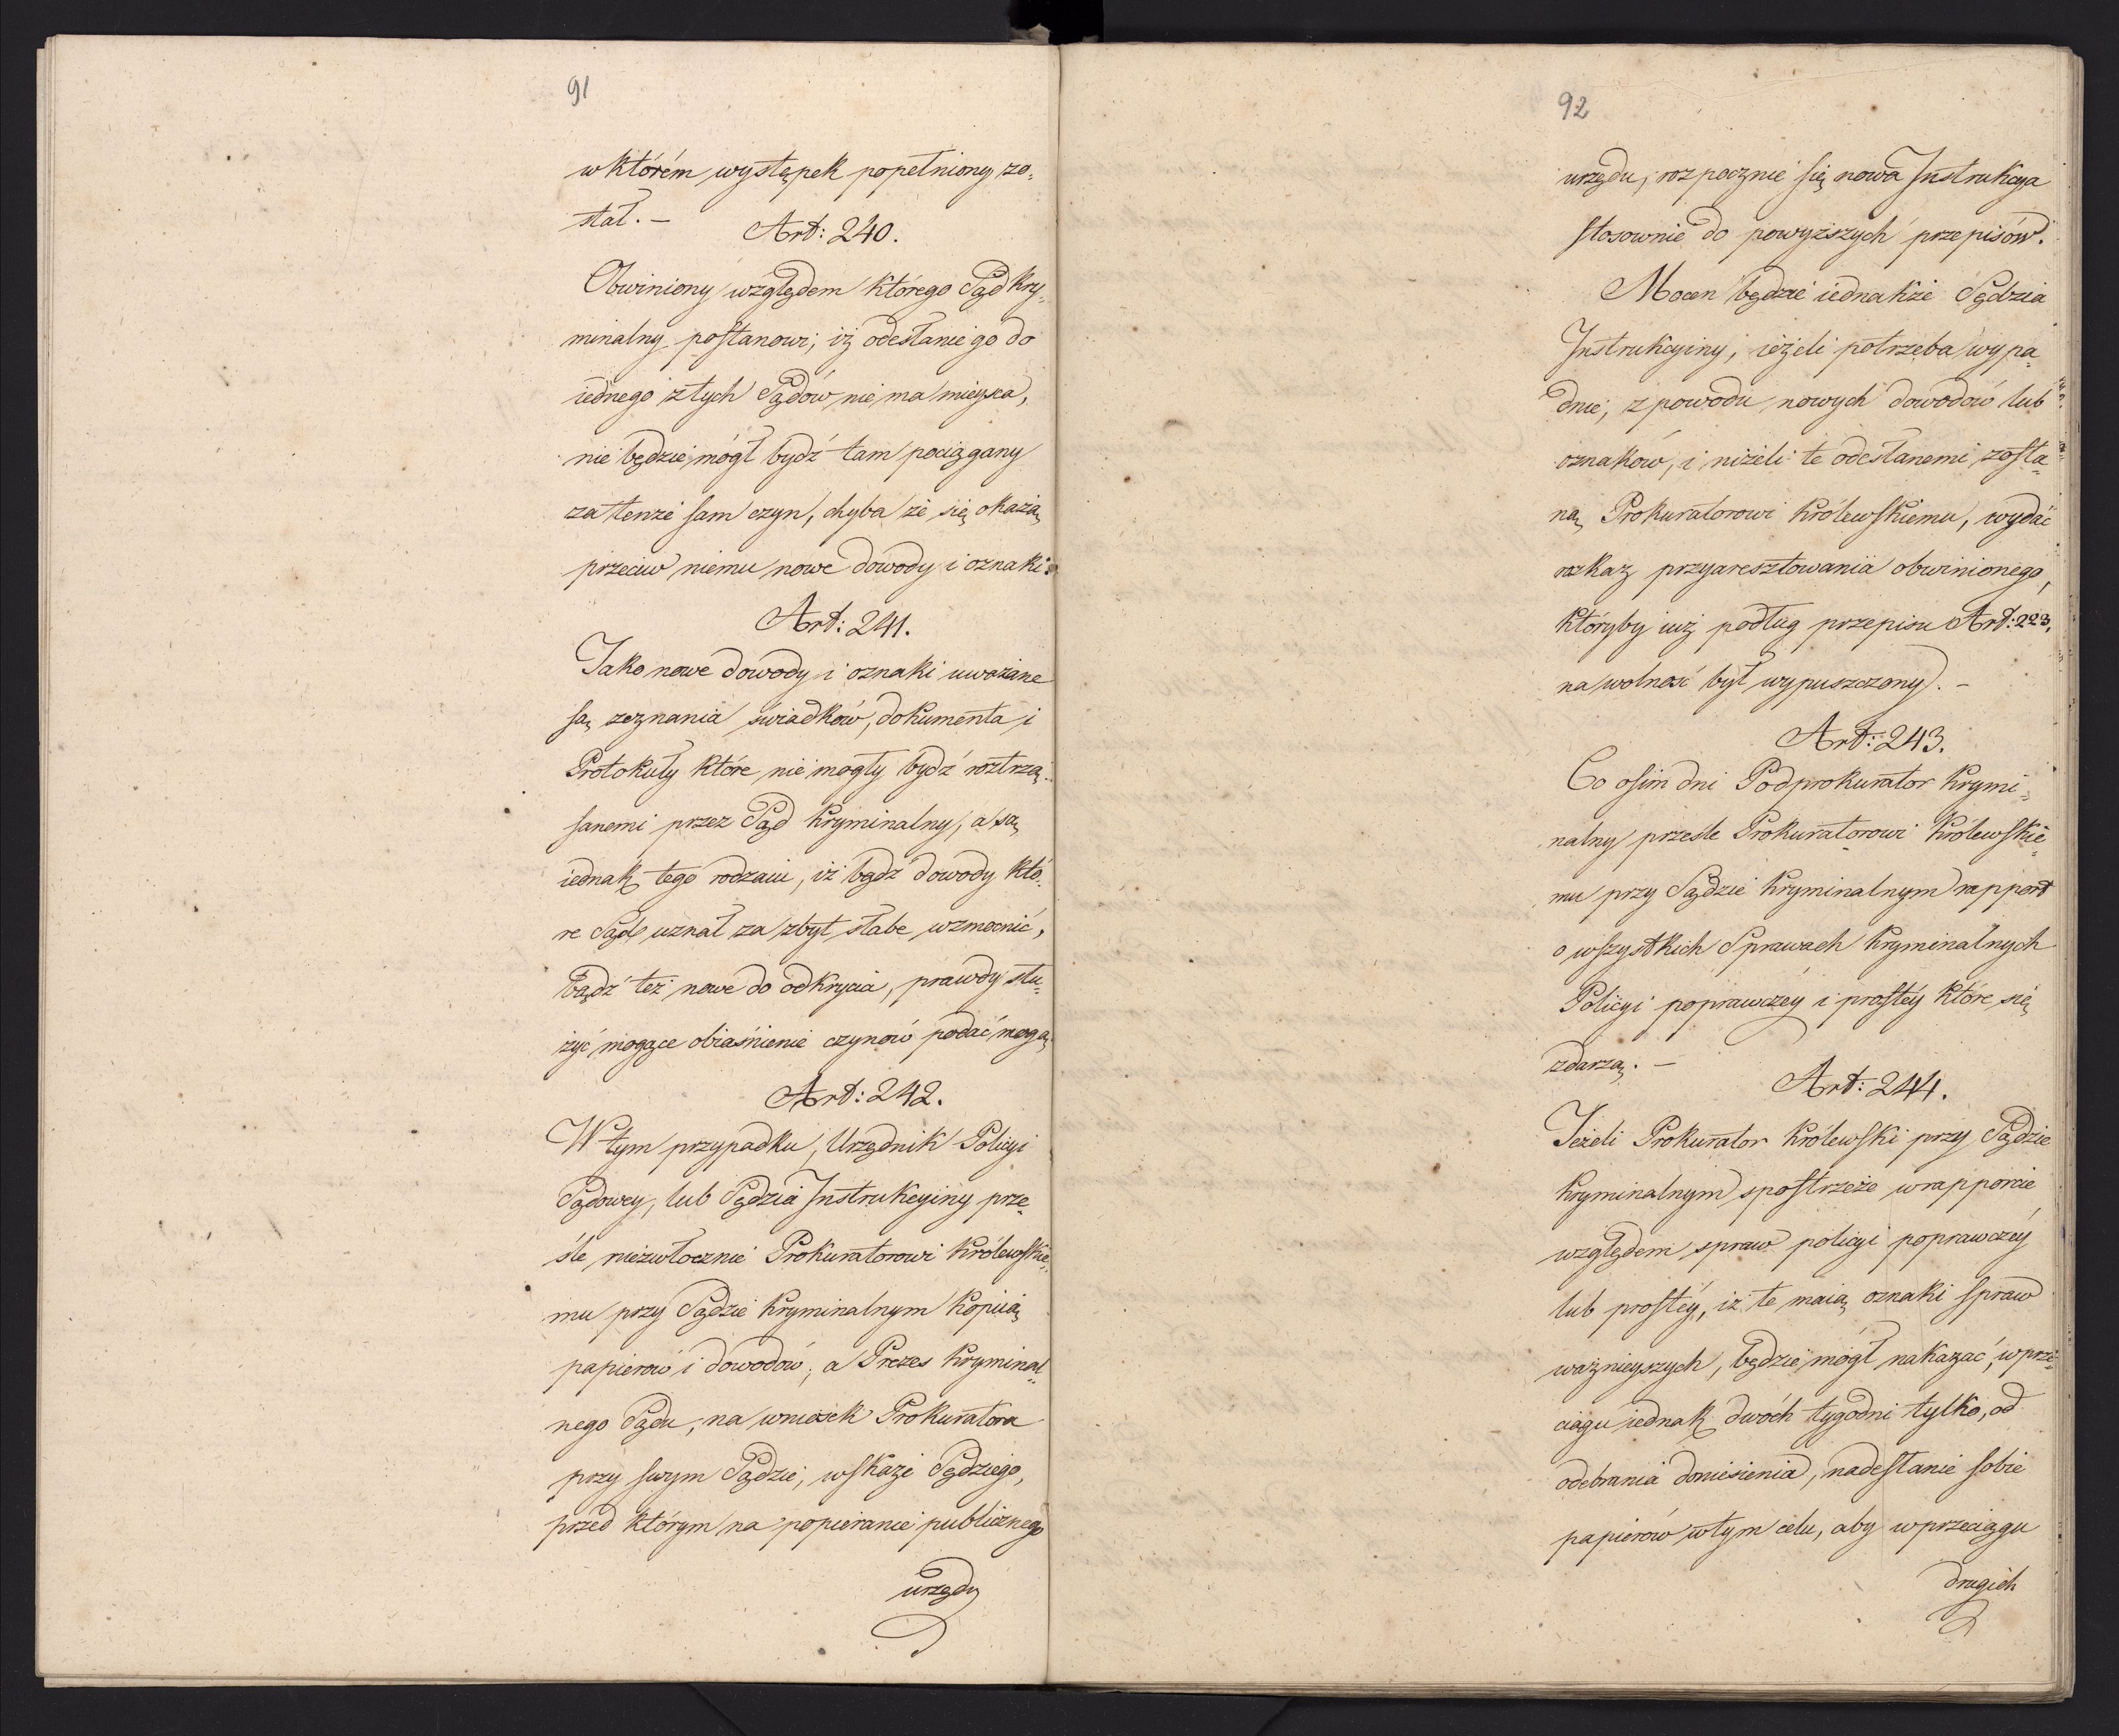 91
w którém występek popełniony zo„
stał. —
Art: 240.
Obwiniony względem którego Sąd kry„
minalny postanowi, iż odesłanie go do
iednego z tych Sądów nie ma mieysca,
nie będzie mógł bydź tam pociągany
za tenże sam czyn, chyba że się okażą
przeciw niemu nowe dowody i oznaki.
Art: 241.
Jako nowe dowody i oznaki uważane
są zeznania świadków, dokumenta i
Protokuły które nie mogły bydź roztrzą„
sanemi przez Sąd kryminalny, a są
iednak tego rodzaiu, iż bądź dowody któ„
re Sąd uznał za zbyt słabe wzmocnić,
bądź też nowe do odkrycia, prawdy słu„
żyć mogące obiaśnienie czynów podać mogą
Art: 242.
W tym przypadku, Urzędnik Policyi
Sądowey, lub Sędzia Instrukcyiny prze„
śle niezwłocznie Prokuratorowi Królewskie„
mu przy Sądzie kryminalnym kopiią
papierów i dowodów, a Prezes kryminal„
nego Sądu, na wniosek Prokuratora
przy swym Sądzie, wskaże Sędziego,
przed którym na popieranie publicznego
urzędu
92
urzędu, rozpocznie się nowa Instrukcya
stosownie do powyższych przepisów.
Mocen będzie iednakże Sędzia
Instrukcyiny, ieżeli potrzeba wypa„
dnie, z powodu nowych dowodów lub
oznaków, i niżeli te odesłanemi zosta„
ną Prokuratorowi Królewskiemu, wydać
rozkaz przyaresztowania obwinionego,
któryby iuż podług przepisu Art: 223,
na wolność był wypuszczony. —
Art: 243.
Co ośim dni Podprokurator krymi„
nalny prześle Prokuratorowi Królewskie„
mu przy Sądzie kryminalnym rapport
o wszystkich Sprawach kryminalnych
Policyi poprawczéy i prostéy które się
zdarzą. —
Art: 244.
Jeżeli Prokurator Królewski przy Sądzie
kryminalnym spostrzeże w rapporcie
względem spraw policyi poprawczéy
lub prostéy, iż te maią oznaki spraw
ważnieyszych, będzie mógł nakazać, w prze„
ciągu iednak dwóch tygodni tylko, od
odebrania doniesienia, nadesłanie sobie
papierów w tym celu, aby w przeciągu
drugich